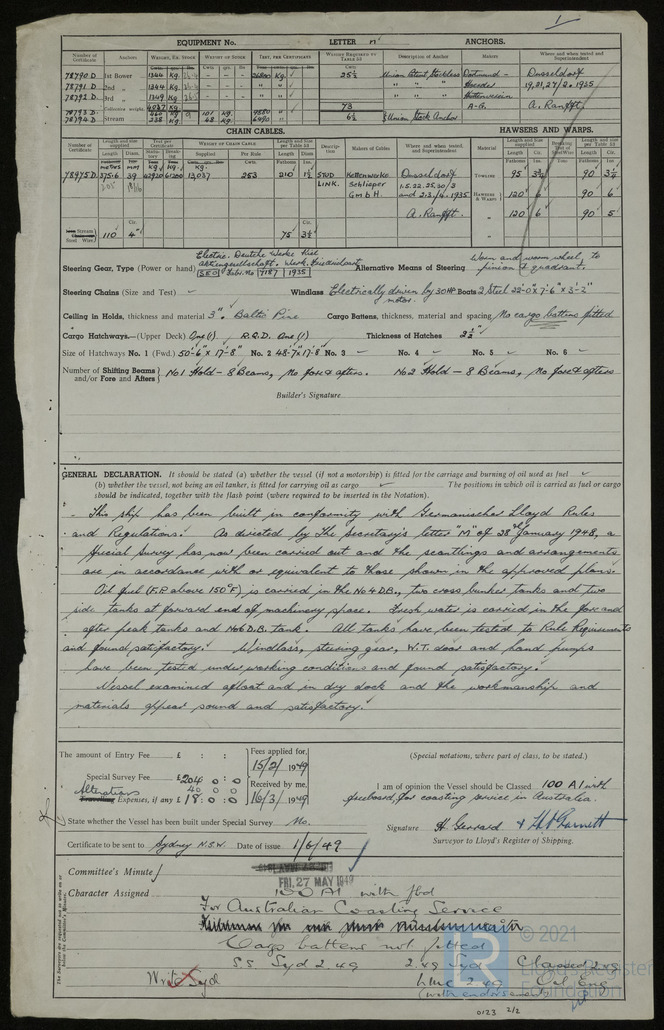 1/
EQUIPMENT No. LETTER m ANCHORS.
Number of Certificate Anchors WEIGHT, EX. STOCK WEIGHT OF STOCK TEST, PER CERTIFICATE WEIGHT REQUIRED BY TABLE 53 Description of Anchor Makers Where and when tested and Superintendent
78790 D. 1st Bower 1344 Kg. 26800 Kg. 25½ Union Patent Stockless Dortmund- Dusseldorf
78791 D 2nd " 1344 Kg. " " " " Hoerder 19, 21, 27/2. 1935
78792 D. 3rd " 1349 Kg. " " " " Huttenverein
Collective weight 4037 Kg. 73 A-G. A. Ranfft.
78793 D. 101 Kg. 9880 Kg.
78794 D Stream 238 Kg. 48 Kg. 6490 6½ Union Stock Anchor
CHAIN CABLES. HAWSERS AND WARPS.
Number of Certificate Length and size supplied Test per Certificate WEIGHT OF CHAIN CABLE Length and size per Table 53 Description Makers of Cables Where and when tested and Superintendent Material Length and size supplied Breaking Test of Steel Wire Length and size per Table 53
Length Diam. Supplied Per Rule Length Diam. Fathoms Cir. Fathoms Cir.
78975 D. 375·6 39 42920 61200 13,037 253 210 1½ STUD LINK. Kettenwerke Dusseldorf TOWLINE 95 3½ 90 3½
Schlieper 1.5.22.25.30/3
G.m.b.H. and 2.3/4. 1935 HAWSERS & WARPS 120 6 90 6
A. Ranfft. " 120 6 90 5
Stream Steel Wire 110 4" 75 3½
Electric. Deutsche Werke Kiel
Steering Gear, Type (Power or hand) Aktiengesellschaft. Werk. Friedrichsort. SEO Fabr. No 7187 1935 Alternative Means of Steering Worm and worm wheel, to pinion & quadrant.
Steering Chains (Size and Test) Windlass Electrically driven by 30 HP motor. Boats 2 Steel 22'-0" x 7'-6" x 3'-2"
Ceiling in Holds, thickness and material 3". Baltic Pine Cargo Battens, thickness, material and spacing No cargo battens fitted
Cargo Hatchways—(Upper Deck) One (1) R.Q.D. One (1) Thickness of Hatches 2½"
Size of Hatchways No. 1 (Fwd.) 50'-6" x 17'-8" No. 2 48'-7" x 17'-8" No. 3 No. 4 No. 5 No. 6
Number of Shifting Beams and/or Fore and Afters No 1 Hold - 8 Beams, No fore & afters. No 2 Hold - 8 Beams, No fore & afters
Builder's Signature
GENERAL DECLARATION. It should be stated (a) whether the vessel (if not a motorship) is fitted for the carriage and burning of oil used as fuel
(b) whether the vessel, not being an oil tanker, is fitted for carrying oil as cargo The positions in which oil is carried as fuel or cargo
should be indicated, together with the flash point (where required to be inserted in the Notation).
This ship has been built in conformity with Germanischer Lloyd Rules
and Regulations. As directed by The Secretary's letter "M" of 28th January 1948, a
special survey has now been carried out and the scantlings and arrangements
are in accordance with or equivalent to those shown in the approved plans.
Oil fuel (F.P. above 150°F) is carried in the No 4 D.B., two cross bunker tanks and two
side tanks at forward end of machinery space. Fresh water is carried in the fore and
after peak tanks and No 6 D.B. tank. All tanks have been tested to Rule Requirements
and found satisfactory. Windlass, steering gear, W.T. door and hand pumps
have been tested under working conditions and found satisfactory.
Vessel examined afloat and in dry dock and the workmanship and
materials appear sound and satisfactory.
The amount of Entry Fee £ : : Fees applied for, (Special notations, where part of class, to be stated.)
15/2/ 1949
Special Survey Fee £204 : 0 : 0 Received by me,
Alterations 40 : 0 : 0 I am of opinion the Vessel should be Classed 100 A1 with
Travelling Expenses, if any £18 : 0 : 0 16/3/ 1949 freeboard, for coasting service in Australia.
State whether the Vessel has been built under Special Survey No. Signature H. Gerrard & H. Garnett
Surveyor to Lloyd's Register of Shipping.
Certificate to be sent to Sydney N.S.W. Date of issue 1/6/49
Committee's Minute
FRI. 27 MAY 1949
Character Assigned 100 A1 with fbd
For Australian Coasting Service
Cargo battens not fitted
S.S. Syd 2.49 2.49 Syd Classed 2.49
Write Syd LMC 2.49 Oil Eng
(with endorsement)
The Surveyors are requested not to write on or below the Committee's Minute.
© 2021
LR
Lloyd's Register
Foundation
0123 2/2